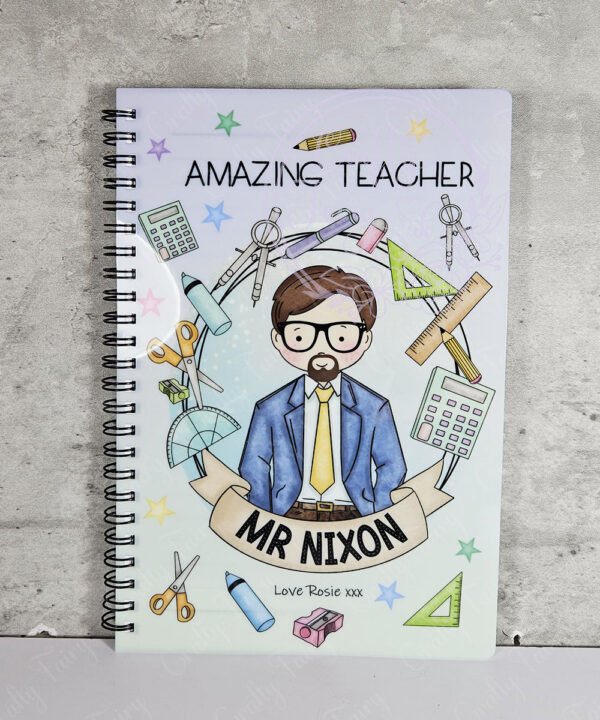 AMAZING TEACHER
MR NIXON
Love Rosie xxx